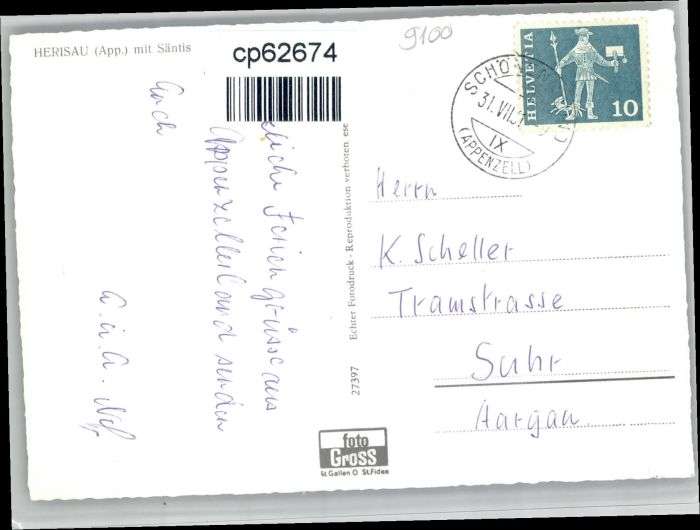 HERISAU (App.) mit Säntis
cp62674
9100
HELVETIA
10
31. VII.
IX
(APPENZELL)
liche Feriengrüsse aus
Appenzellerland senden
Euch
27397 Echter Fotodruck · Reproduktion verboten
Herrn
K. Scheller
Tramstrasse
Suhr
Aargau.
foto
Gross
St.Gallen O St.Fiden